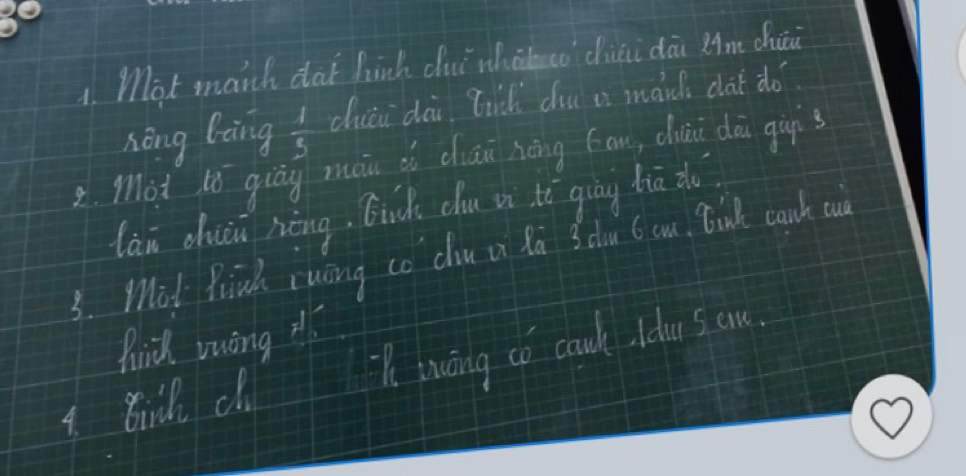 1. Một mảnh đất hình chữ nhật có chiều dài 21m chiều
rộng bằng 1/3 chiều dài. Tính chu vi mảnh đất đó.
2. Một tờ giấy màu có chiều rộng 6cm, chiều dài gấp 3
lần chiều rộng. Tính chu vi tờ giấy bìa đó.
3. Một hình vuông có chu vi là 3dm 6cm. Tính cạnh của
hình vuông
4. Tính ch
vuông có cạnh 1dm 5cm.